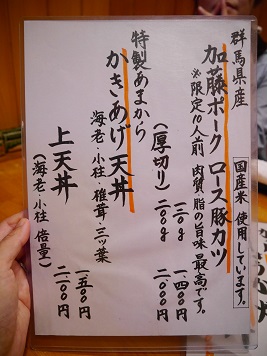 群馬県産
国産米 使用しています。
加藤ポーク ロース豚カツ
※限定10人前 肉質 脂の旨味 最高です。
(厚切り) 一二〇g 一.四〇〇円
二〇〇g 二.〇〇〇円
特製あまから
かきあげ天丼
海老 小柱 椎茸 三ッ葉
一.五〇〇円
上天丼
(海老、小柱 倍量) 二.〇〇〇円